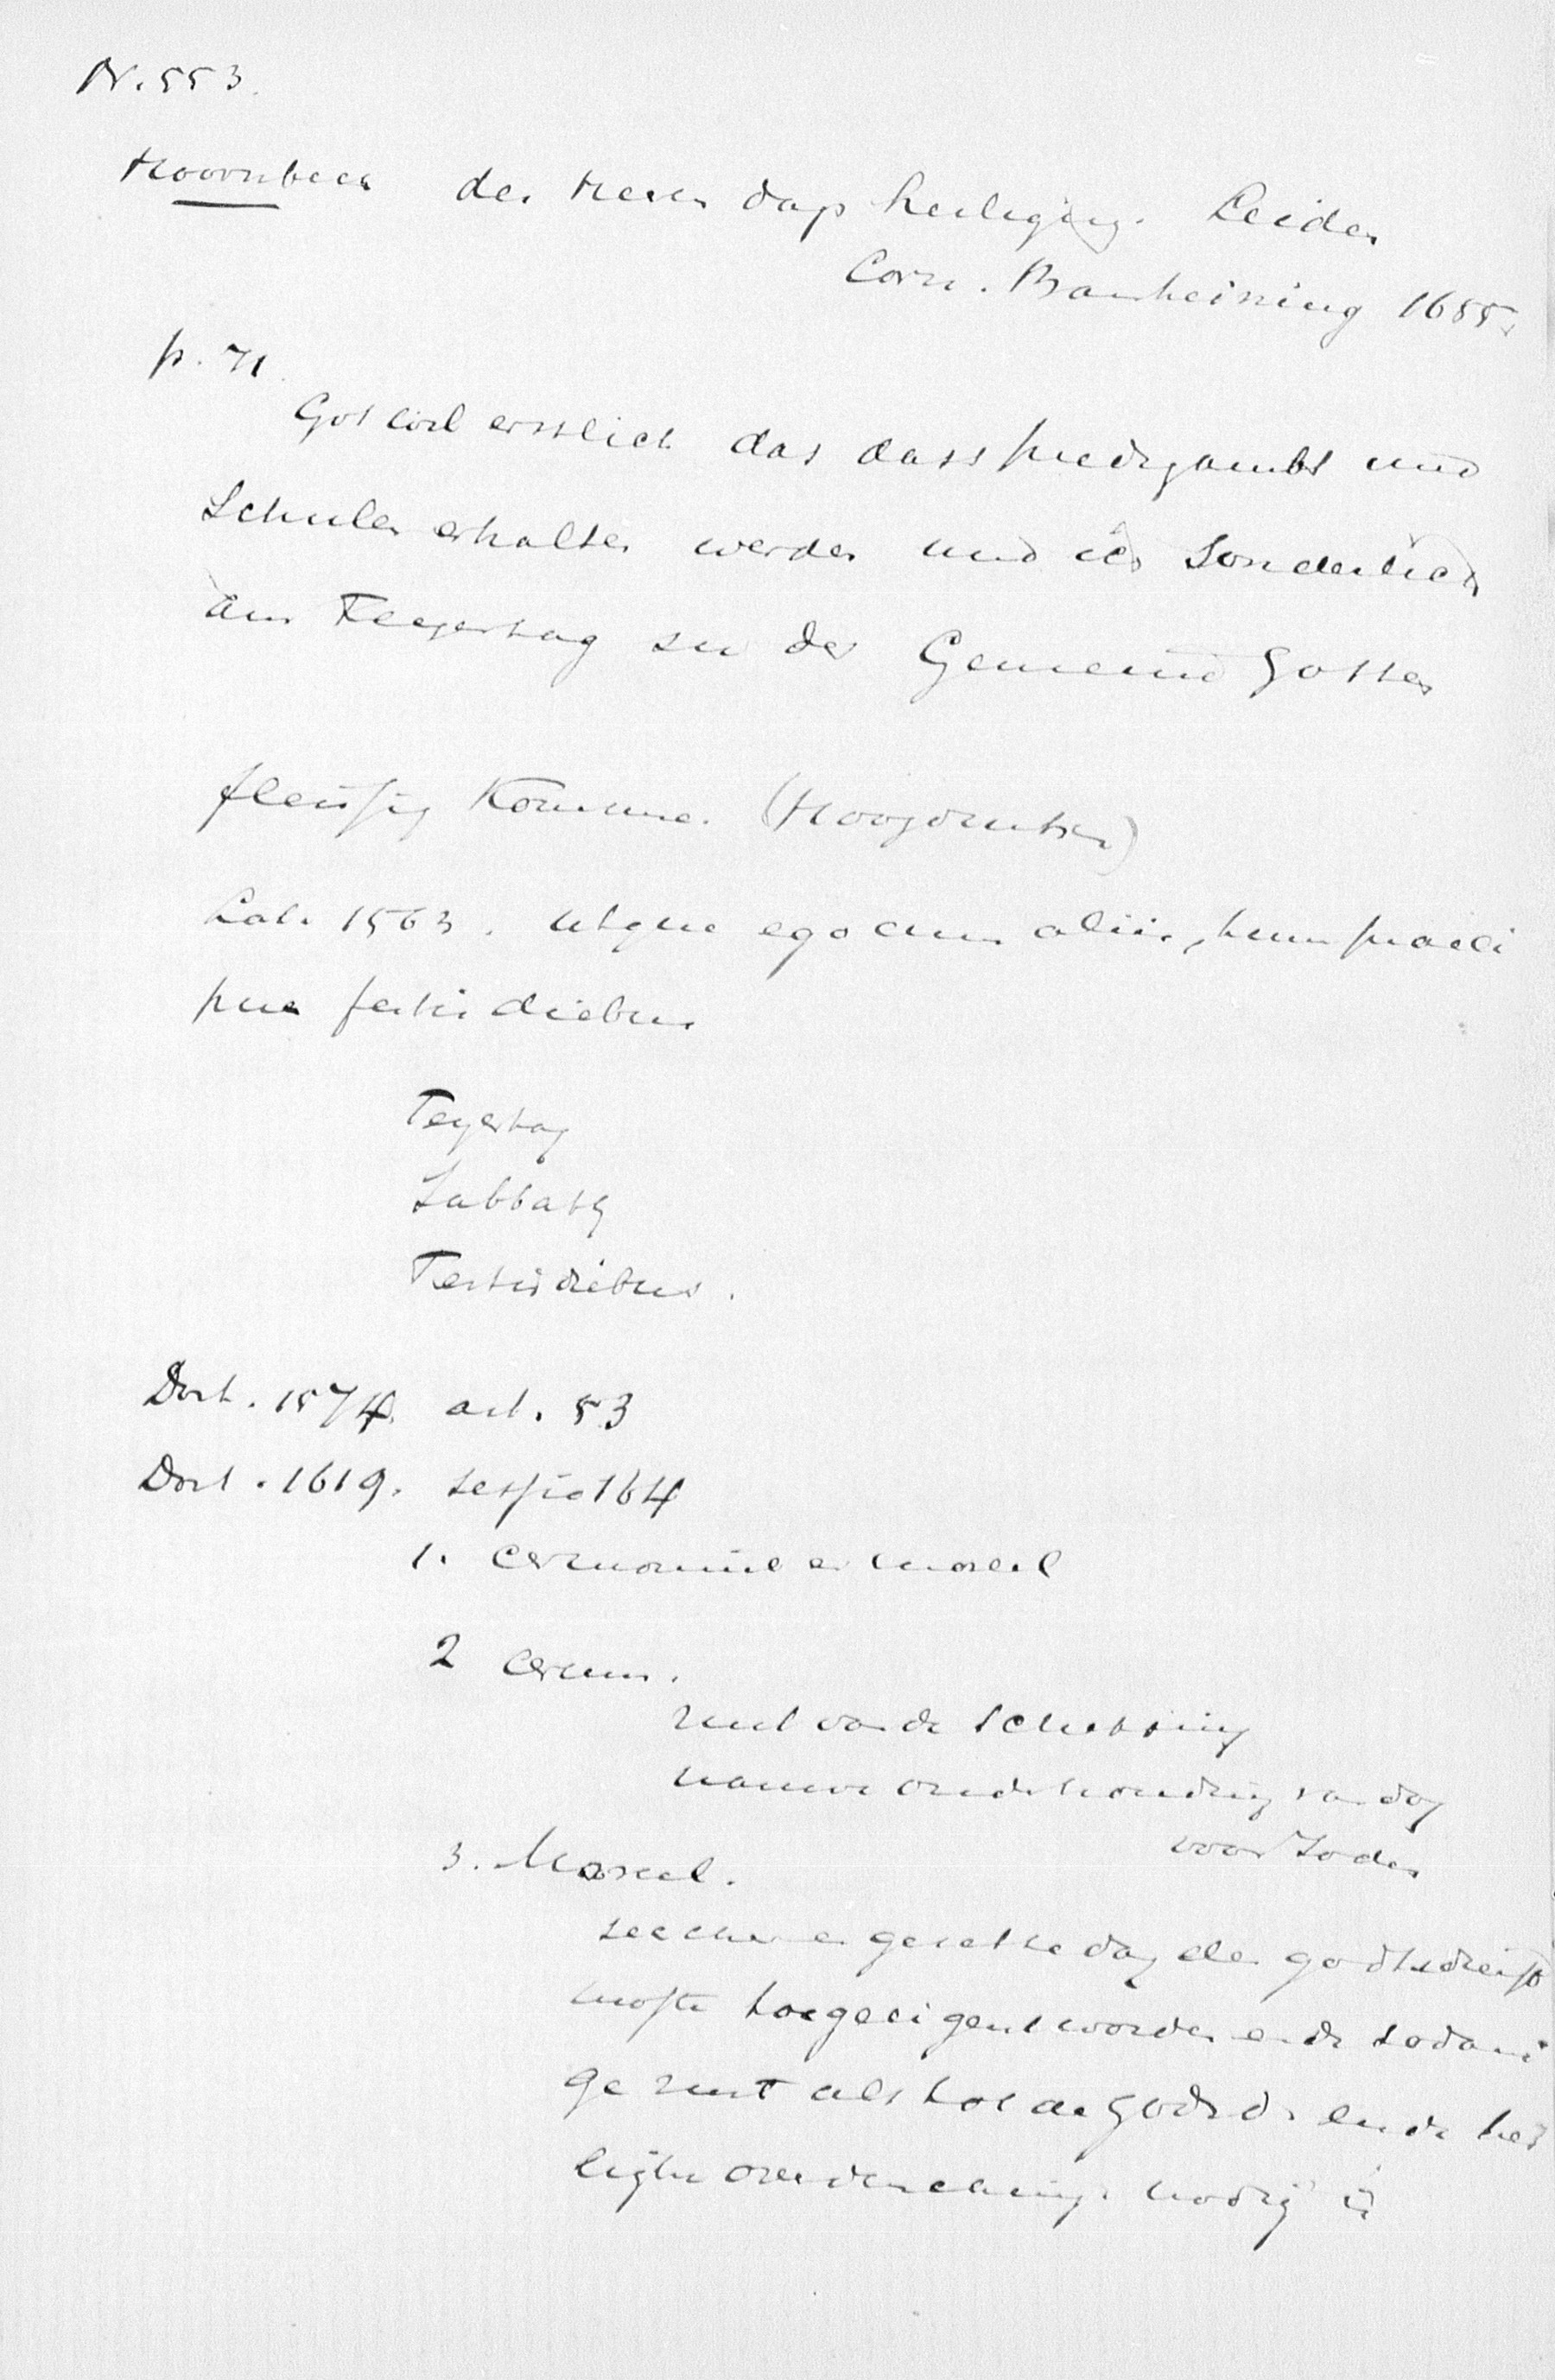 N. 553.
Hoornbeek des Heren dags heiliging. Leiden
Corn. Banheining 1655.
p. 71.
Got wil erstlich das dass predigambt und
Schulen erhalten werden und ich Sonderlich
am Feyertag zu der Gemeind Gottes
fleissig komme. (Hoogduitsch)
Lat. 1563. utque ego cum aliis, tum praeci
pue festis diebus
Feyertag
Sabbath
Festis diebus.
Dort. 1574. art. 53
Dort. 1619. sessio 164
1. ceremonieel en moreel
2 cerem.
rust van de schepping
nauwe onderhouding van dag
voor Joden
3. Moreel.
seecker en gesette dag den godtsdienst
moste toegeeigent worden ende sodani
ge rust als tot de godsd. ende hei
lighe overdencking. nodig is